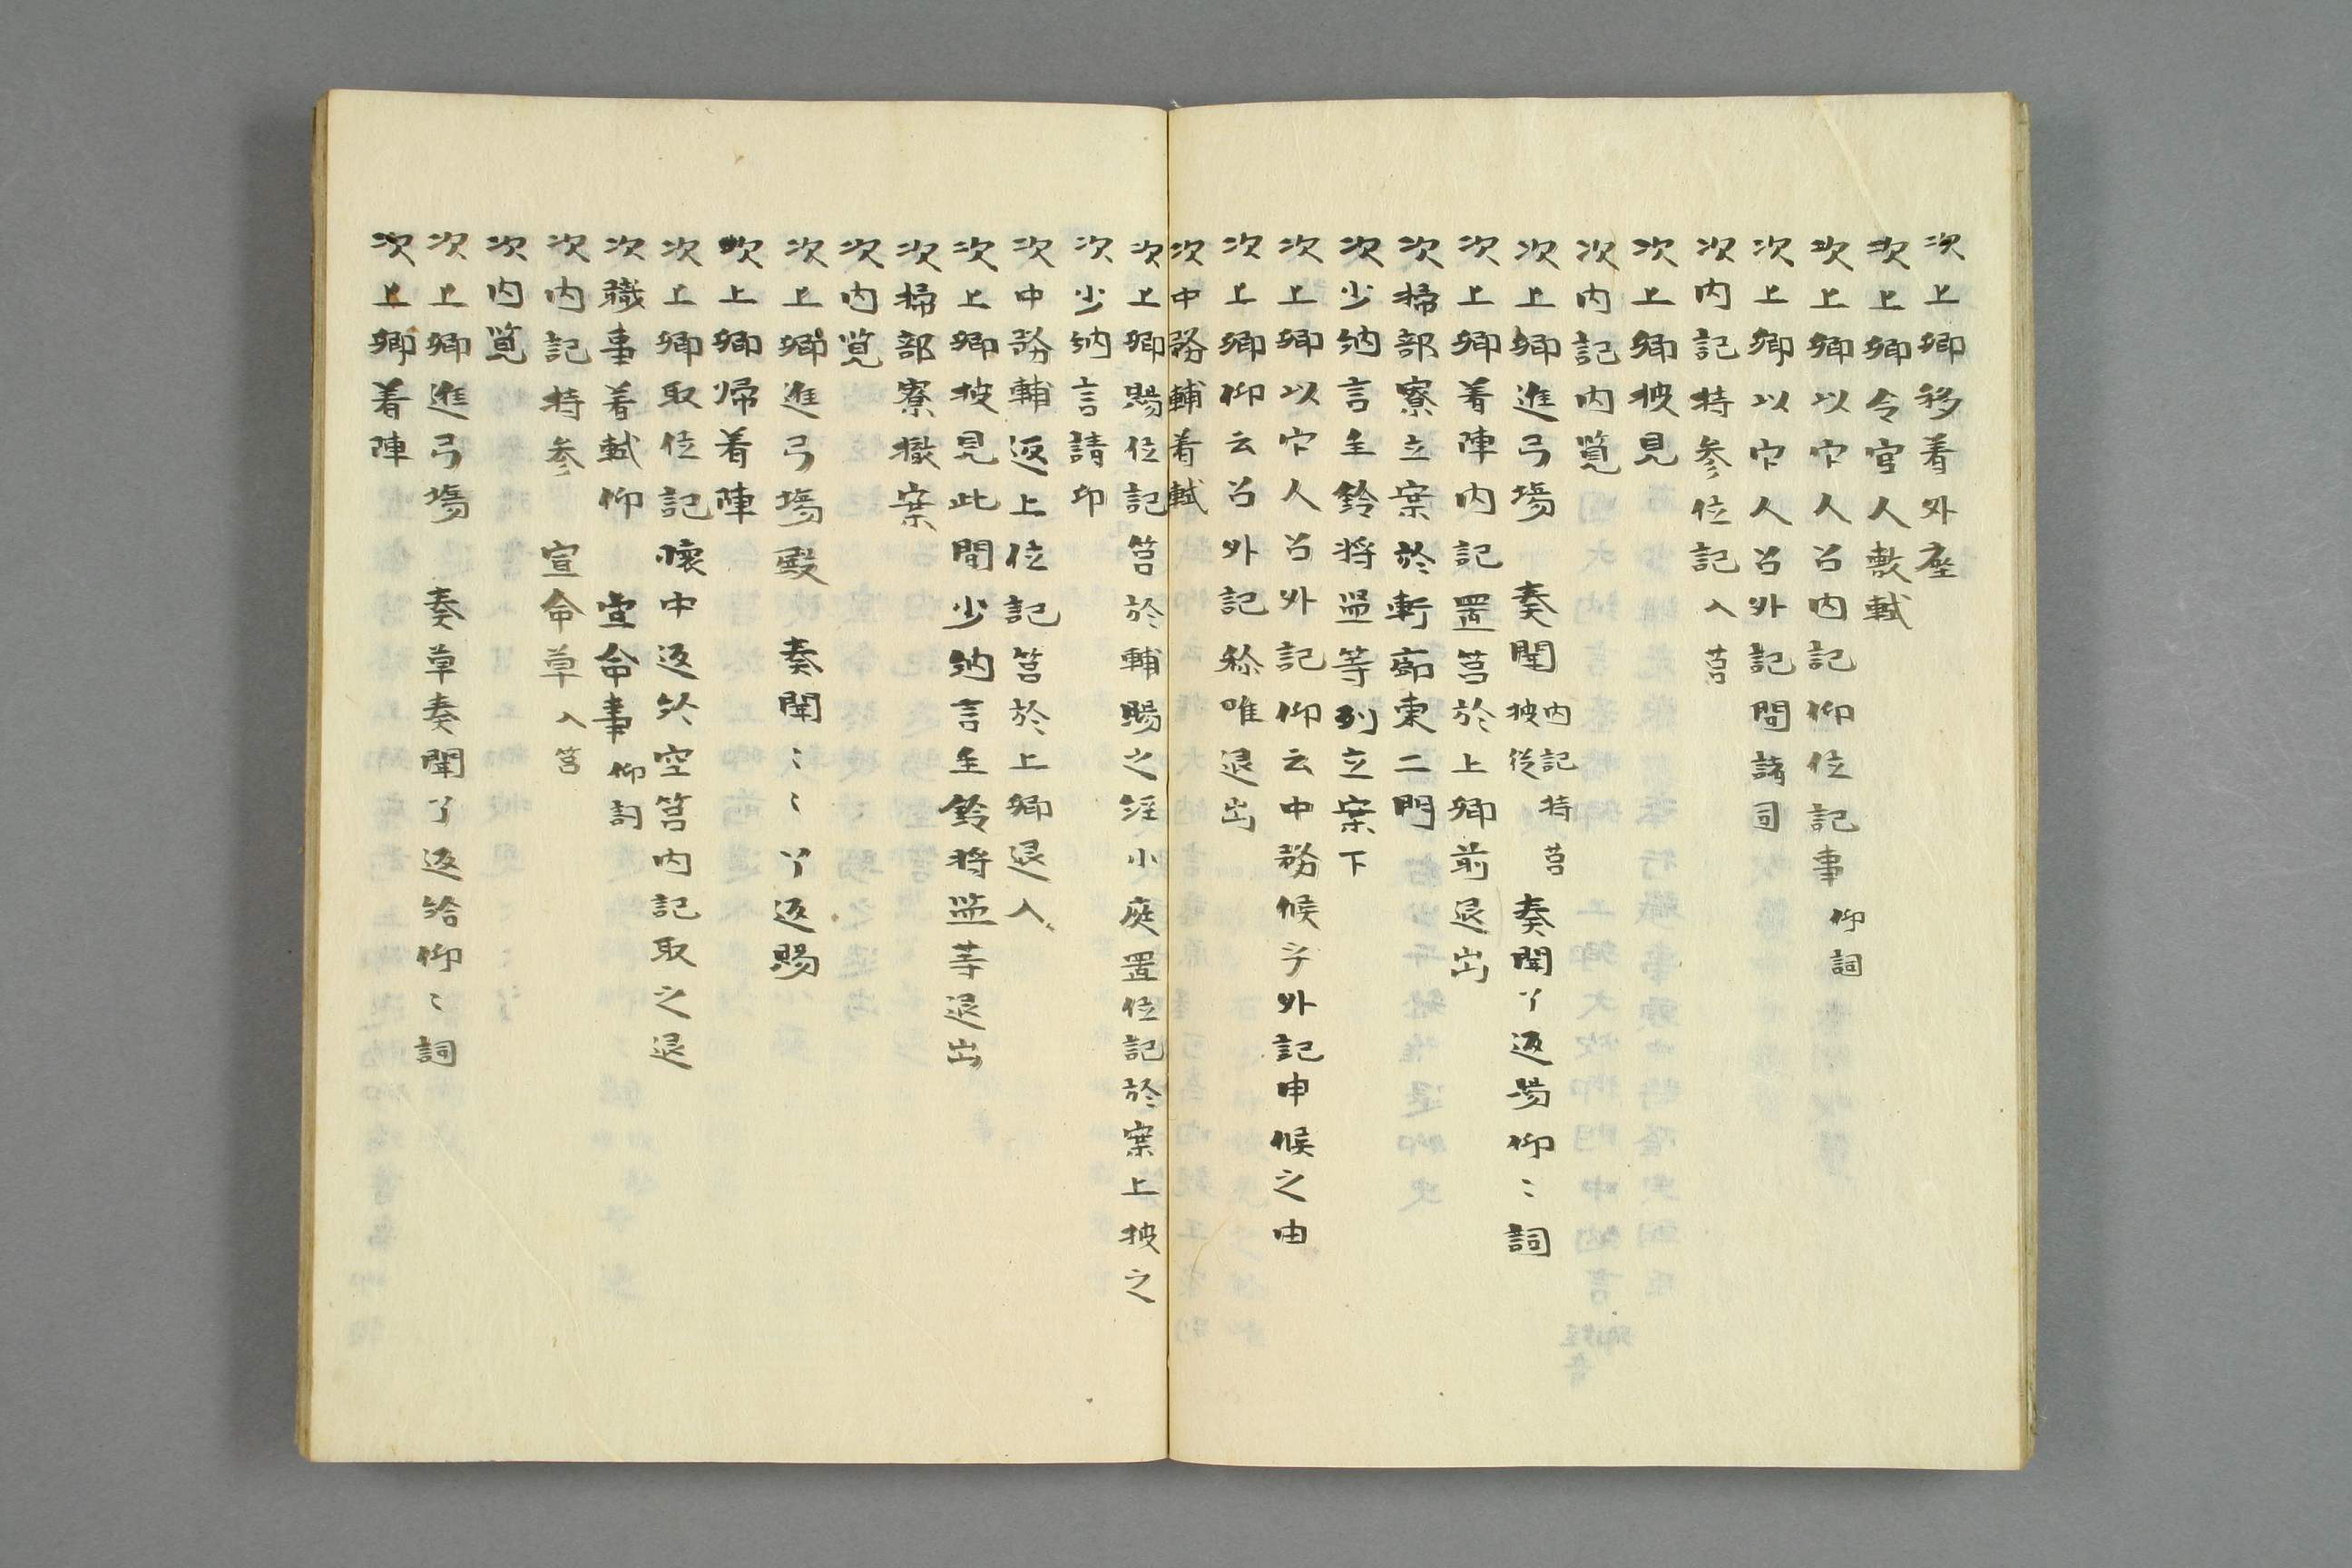 次上卿移着外座
次上卿令官人敷軾
次上卿以官人召内記仰位記事 仰詞
次上卿以官人召外記問諸司
次内記持参位記 入莒
次上卿披見
次内記内覧
次上卿進弓場 奏聞 内記持莒披従 奏聞了返賜仰〻詞
次上卿着陣内記置莒於上卿前退出
次掃部寮立案於軒廊東二門
次少納言主鈴将監等列立案下
次上卿以官人召外記仰云中務候乎外記申候之由
次上卿仰云召外記称唯退出
次中務輔着軾
次上卿賜位記筥於輔賜之経小庭置位記於案上披之
次少納言請印
次中務輔返上位記筥於上卿退入
次上卿披見此間少納言主鈴将監等退出
次掃部寮撤案
次内覧
次上卿進弓場殿 奏聞〻〻了返賜
次上卿帰着陣
次上卿取位記懐中返給空筥内記取之退
次職事着軾仰 宣命事 仰詞
次内記持参 宣命草 入筥
次内覧
次上卿進弓場 奏草奏聞了返給仰〻詞
次上卿着陣